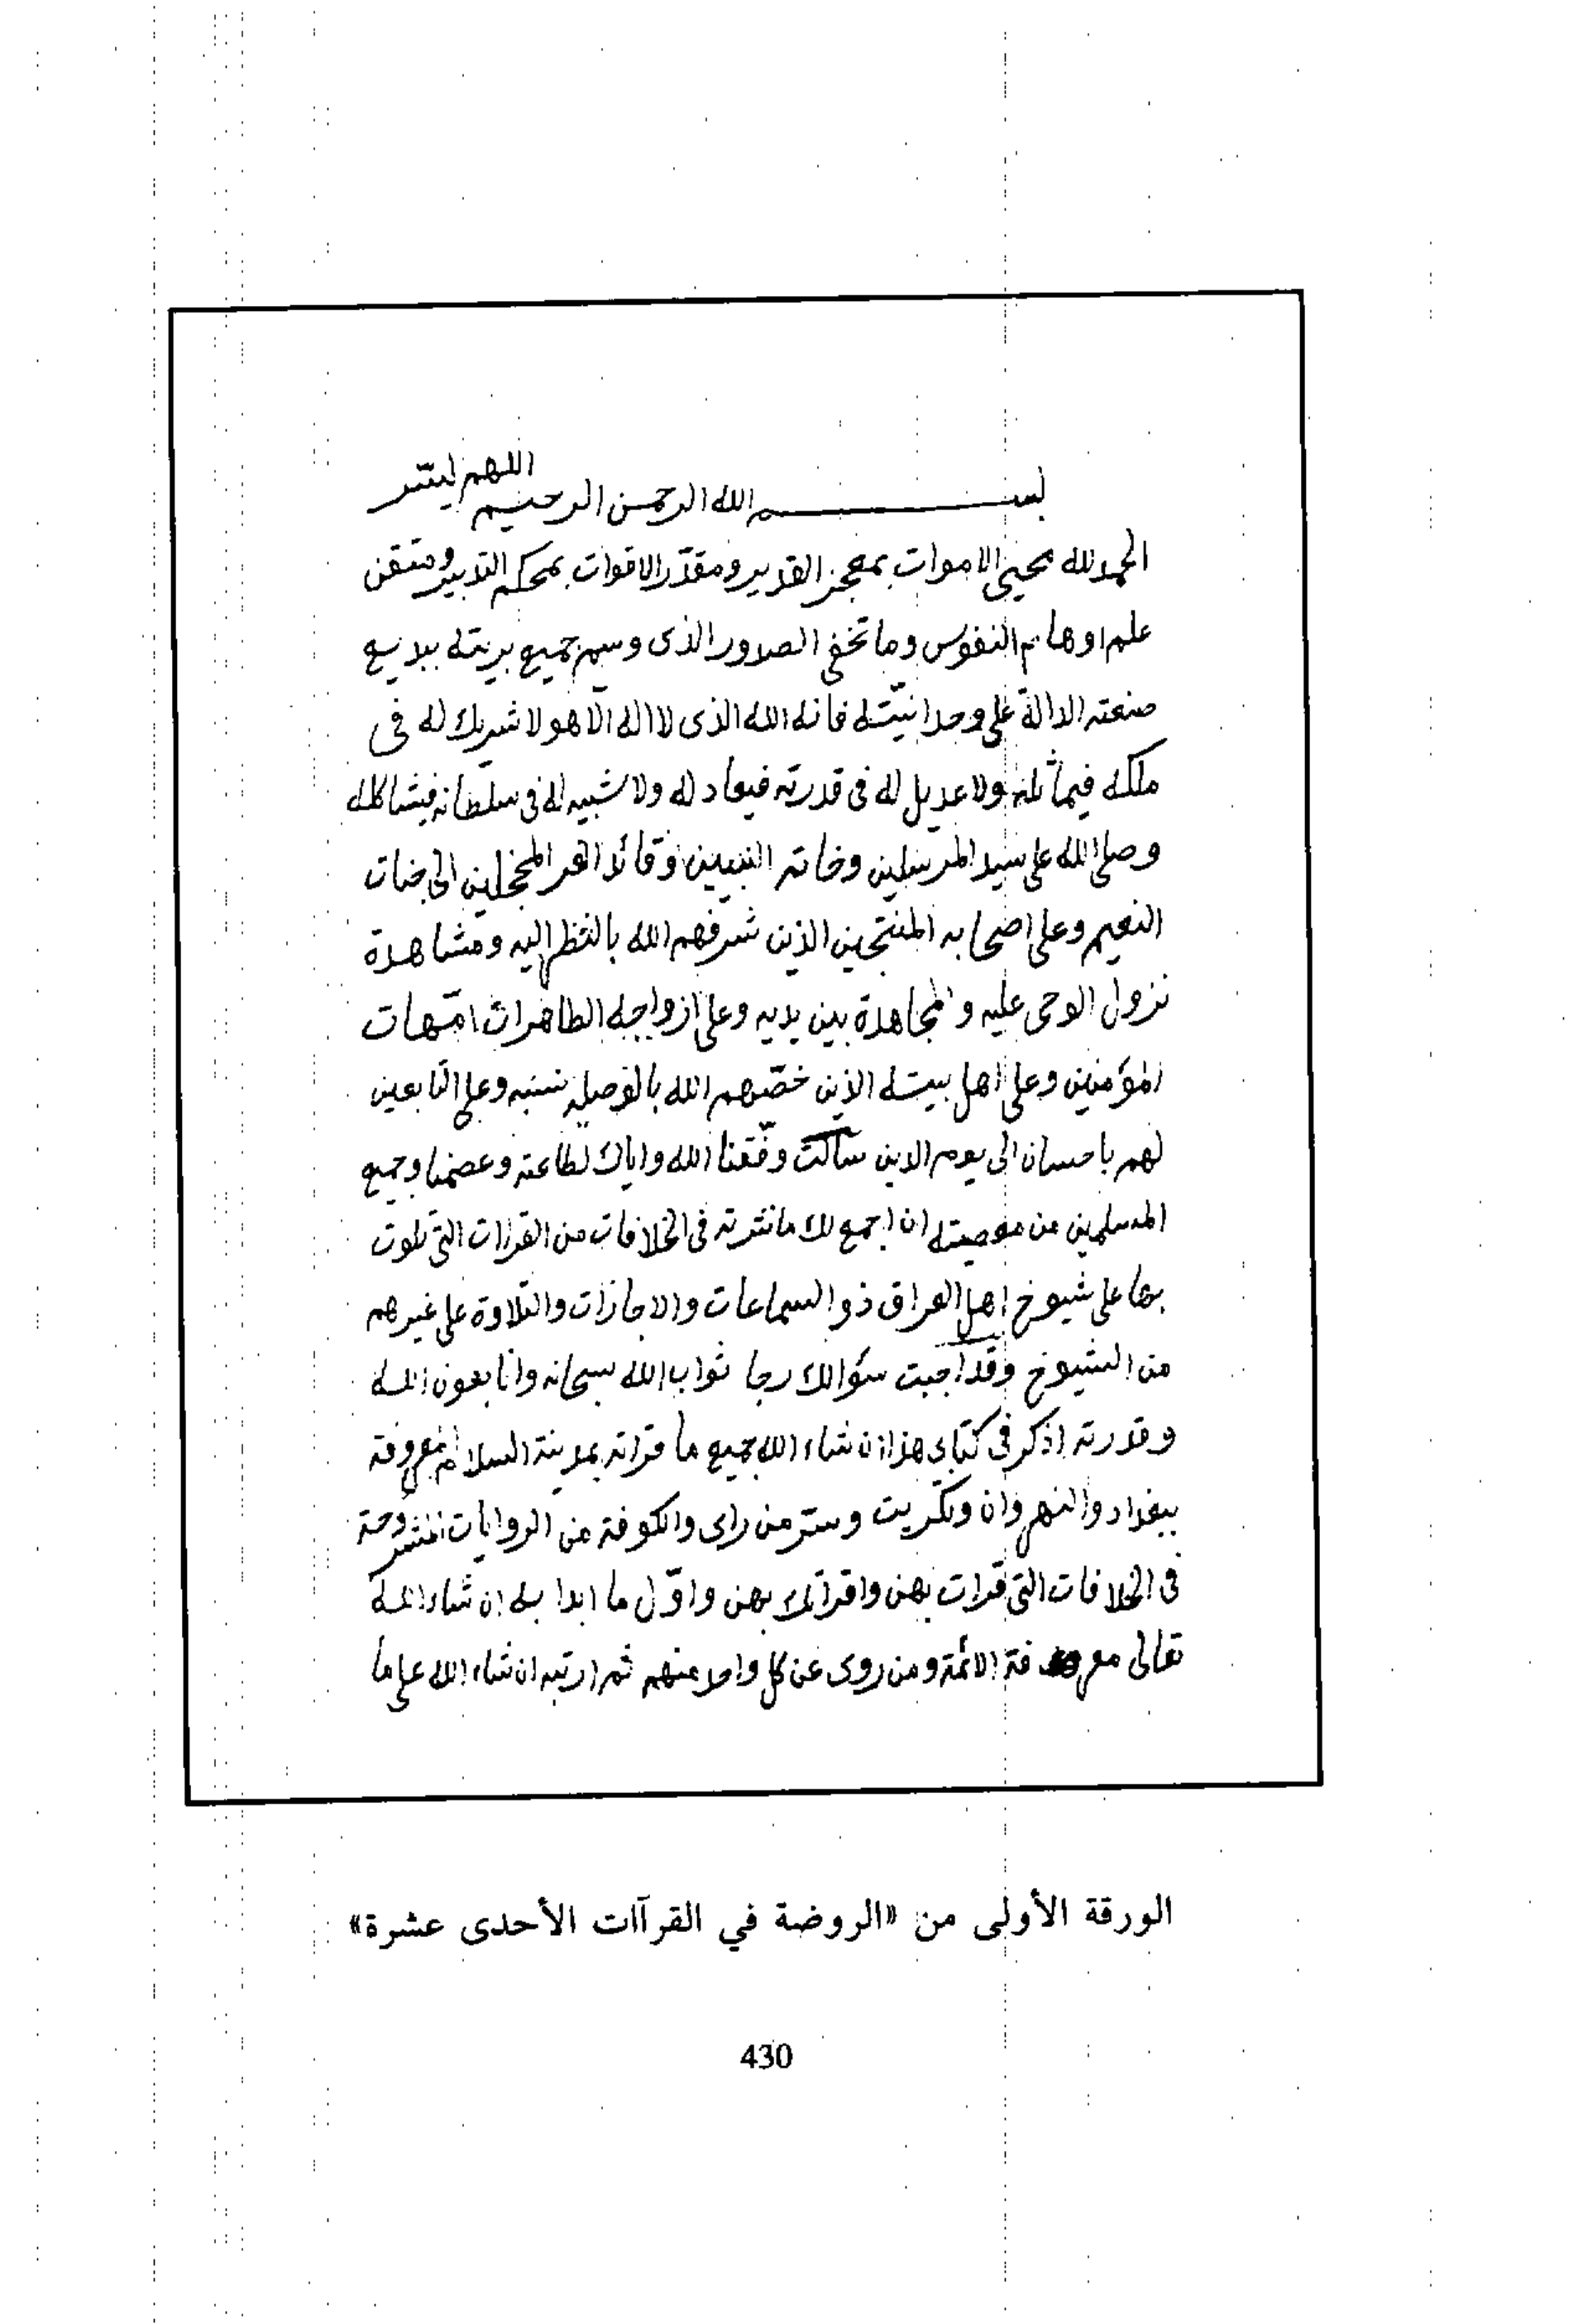 اللهم يسر
بسم الله الرحمن الرحيم
الحمد لله محيى الاموات بمعجز القدير ومقدر الاقوات بمحكم التدبير ومتقن
علم اوهام النفوس وما تخفى الصدور الذى وسم جميع بريته ببدايع
صنعته الدالة على وحدانيته فانه الله الذى لا اله الا هو لا شريك له فى
ملكه فيماثله ولا عديل له فى قدرته فيعادله ولا شبيه له فى سلطانه فيشاكله
وصلى الله على سيد المرسلين وخاتم النبيين وقائد الغر المحجلين الى جنات
النعيم وعلى اصحابه المنتجبين الذين شرفهم الله بالنظر اليه ومشاهدة
نزول الوحى عليه والمجاهدة بين يديه وعلى ازواجه الطاهرات امّهات
المؤمنين وعلى اهل بيته الذين خصّهم الله بالوصلة بنسبه وعلى التابعين
لهم باحسان الى يوم الدين سألت وفّقنا الله واياك لطاعته وعصمنا وجميع
المسلمين من معصيته ان اجمع لك ما نثرته فى الخلافات من القراات التى تلوت
بها على شيوخ اهل العراق ذو السماعات والاجازات والتلاوة على غيرهم
من الشيوخ وقد اجبت سؤالك رجا ثواب الله سبحانه وانا بعون الله
وقدرته اذكر فى كتابى هذا ان شاء الله جميع ما قراته بمدينة السلام المعروفة
ببغداد والنهروان وتكريت وسر من راى والكوفة من الروايات المشروحة
فى الخلافات التى قرات بهن واقراتك بهن واوّل ما ابدا به ان شاء الله
تعالى معرفة الائمة ومن روى عن كل واحد منهم ثم ارتبه ان شاء الله على ما
الورقة الأولى من «الروضة في القرآات الأحدى عشرة»
430